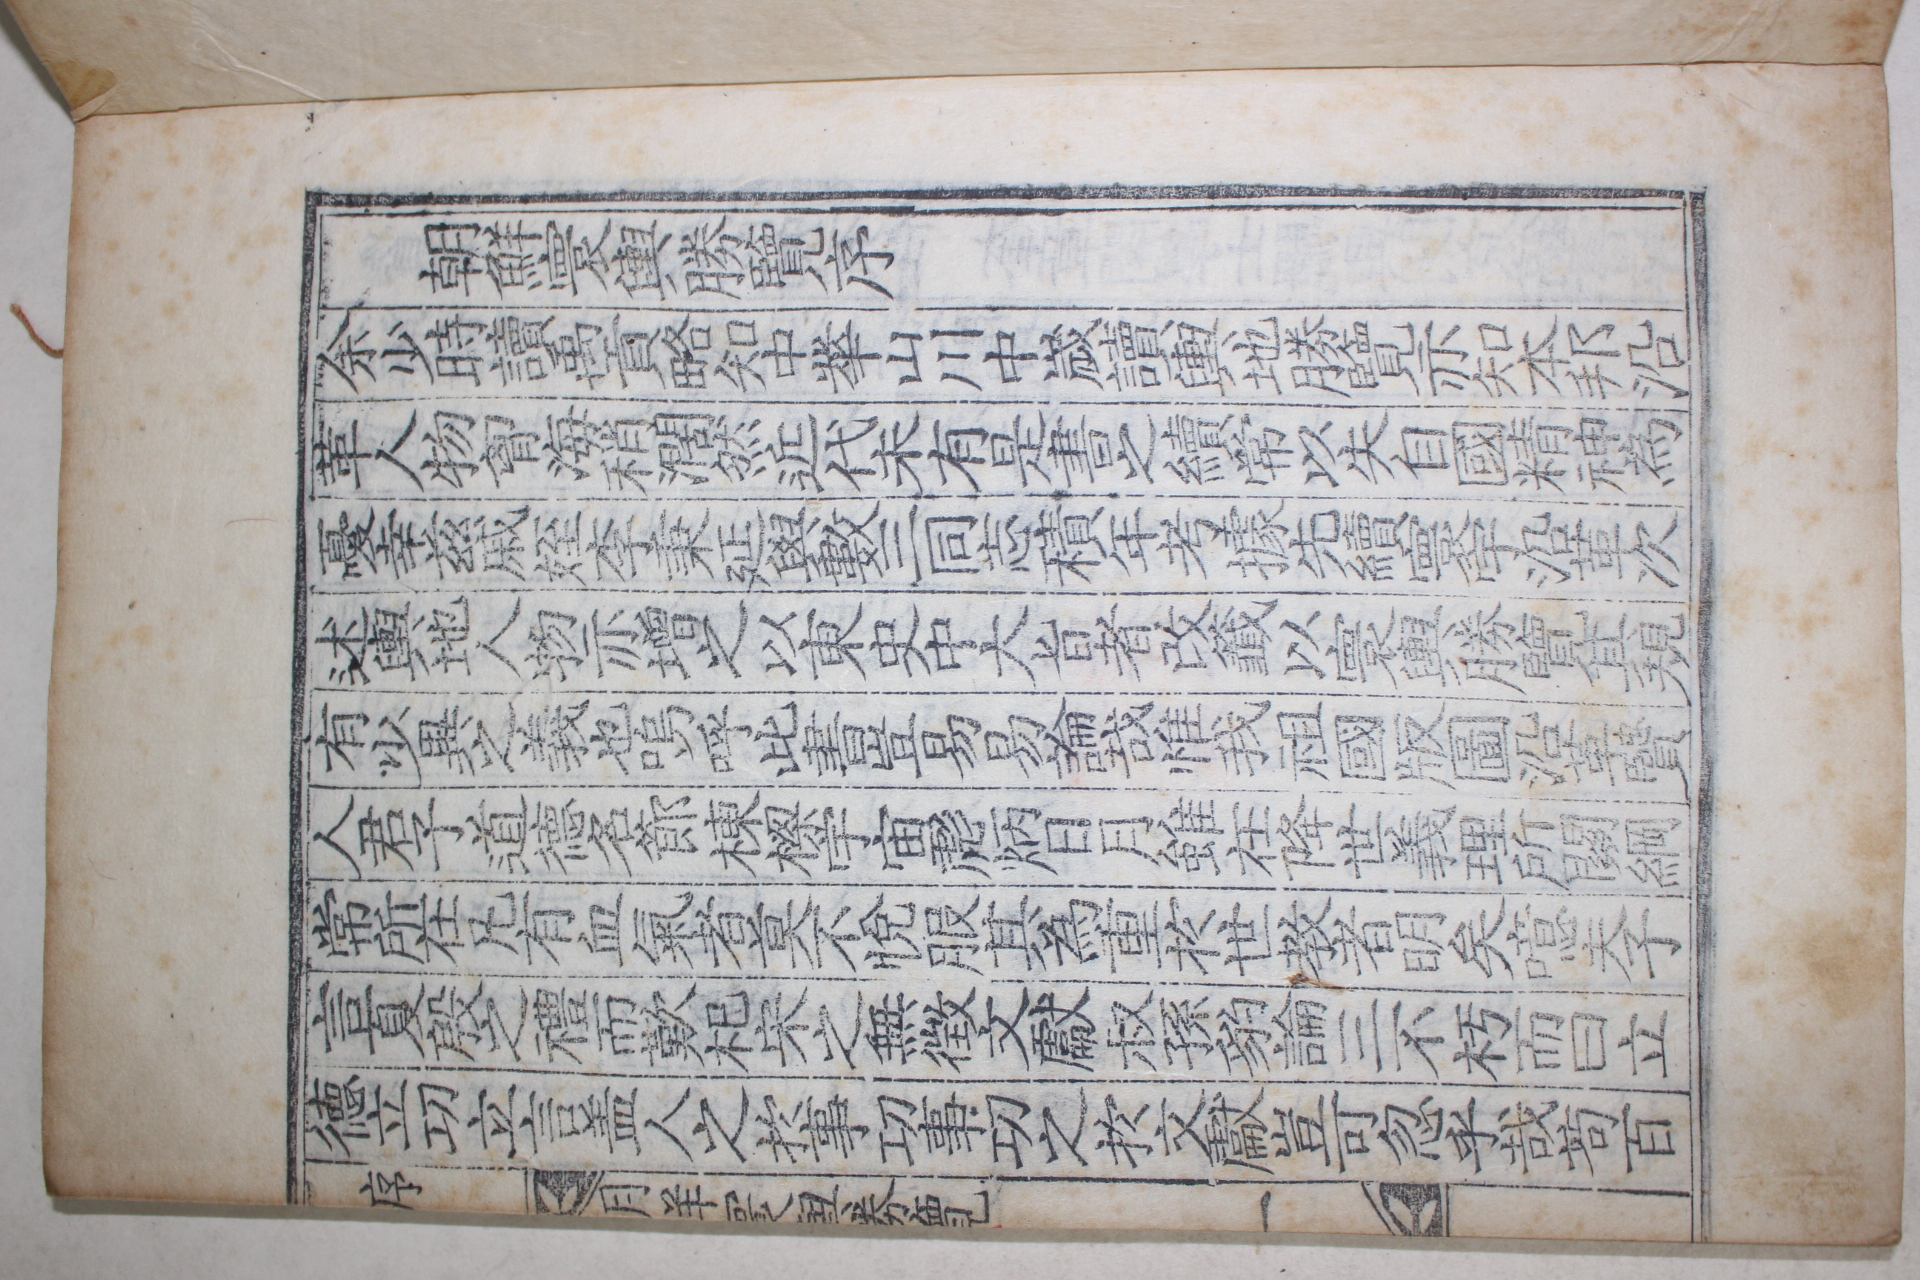 朝鮮寰輿勝覽序
余少時讀禹貢略知中華山川中歲讀輿地勝覽亦知本邦沿
革人物窅海稍濶然近代未有是書之續常以失自國精神為
憂幸茲戚姪李秉延與數三同志積年考據先續寰宇沿革次
述輿地人物亦增之以東史中大旨者改籤以寰輿勝覽其規
有少異之義也嗚呼此書豈易易論哉惟我祖國版圖沿革賢
人君子道德名節棟樑宇宙彪炳日月雖在降世義理所關綱
常所在凡有血氣者莫不悅服其為重於世教者明矣噫夫子
言夏殷之禮而歎杞宋之無徵文獻叔孫豹論三不朽而曰立
德立功立言盖人之於事功事功之於文獻豈可忽乎哉苟百
序
朝鮮寰輿勝覽
一